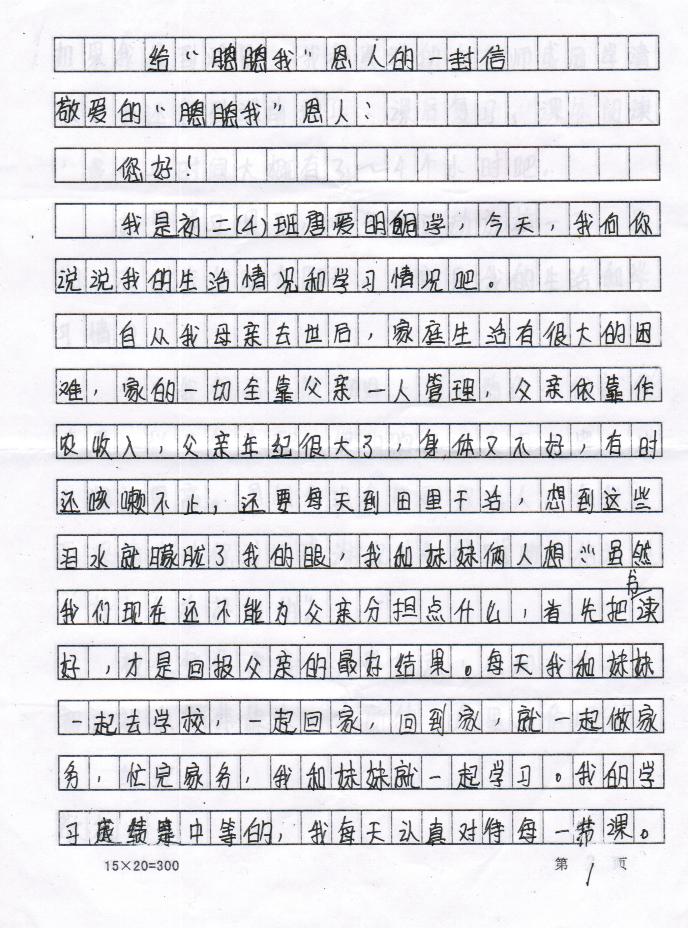 给“腮腮我”恩人的一封信
敬爱的“腮腮我”恩人：
您好！
我是初二(4)班唐爱明同学，今天，我向你
说说我的生活情况和学习情况吧。
自从我母亲去世后，家庭生活有很大的困
难，家的一切全靠父亲一人管理，父亲依靠作
农收入，父亲年纪很大了，身体又不好，有时
还咳嗽不止，还要每天到田里干活，想到这些
泪水就朦胧了我的眼，我和妹妹俩人想：“虽然
我们现在还不能为父亲分担点什么，首先把书读
好，才是回报父亲的最好结果。每天我和妹妹
一起去学校，一起回家，回到家，就一起做家
务，忙完家务，我和妹妹就一起学习。我的学
习成绩是中等的，我每天认真对待每一节课。
15×20=300
第1页